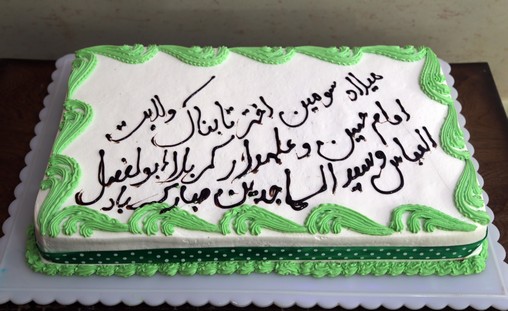 میلاد سومین اختر تابناک ولایت
امام حسین و علمدار کربلا ابولفضل
العباس و سید الساجدین مبارک باد